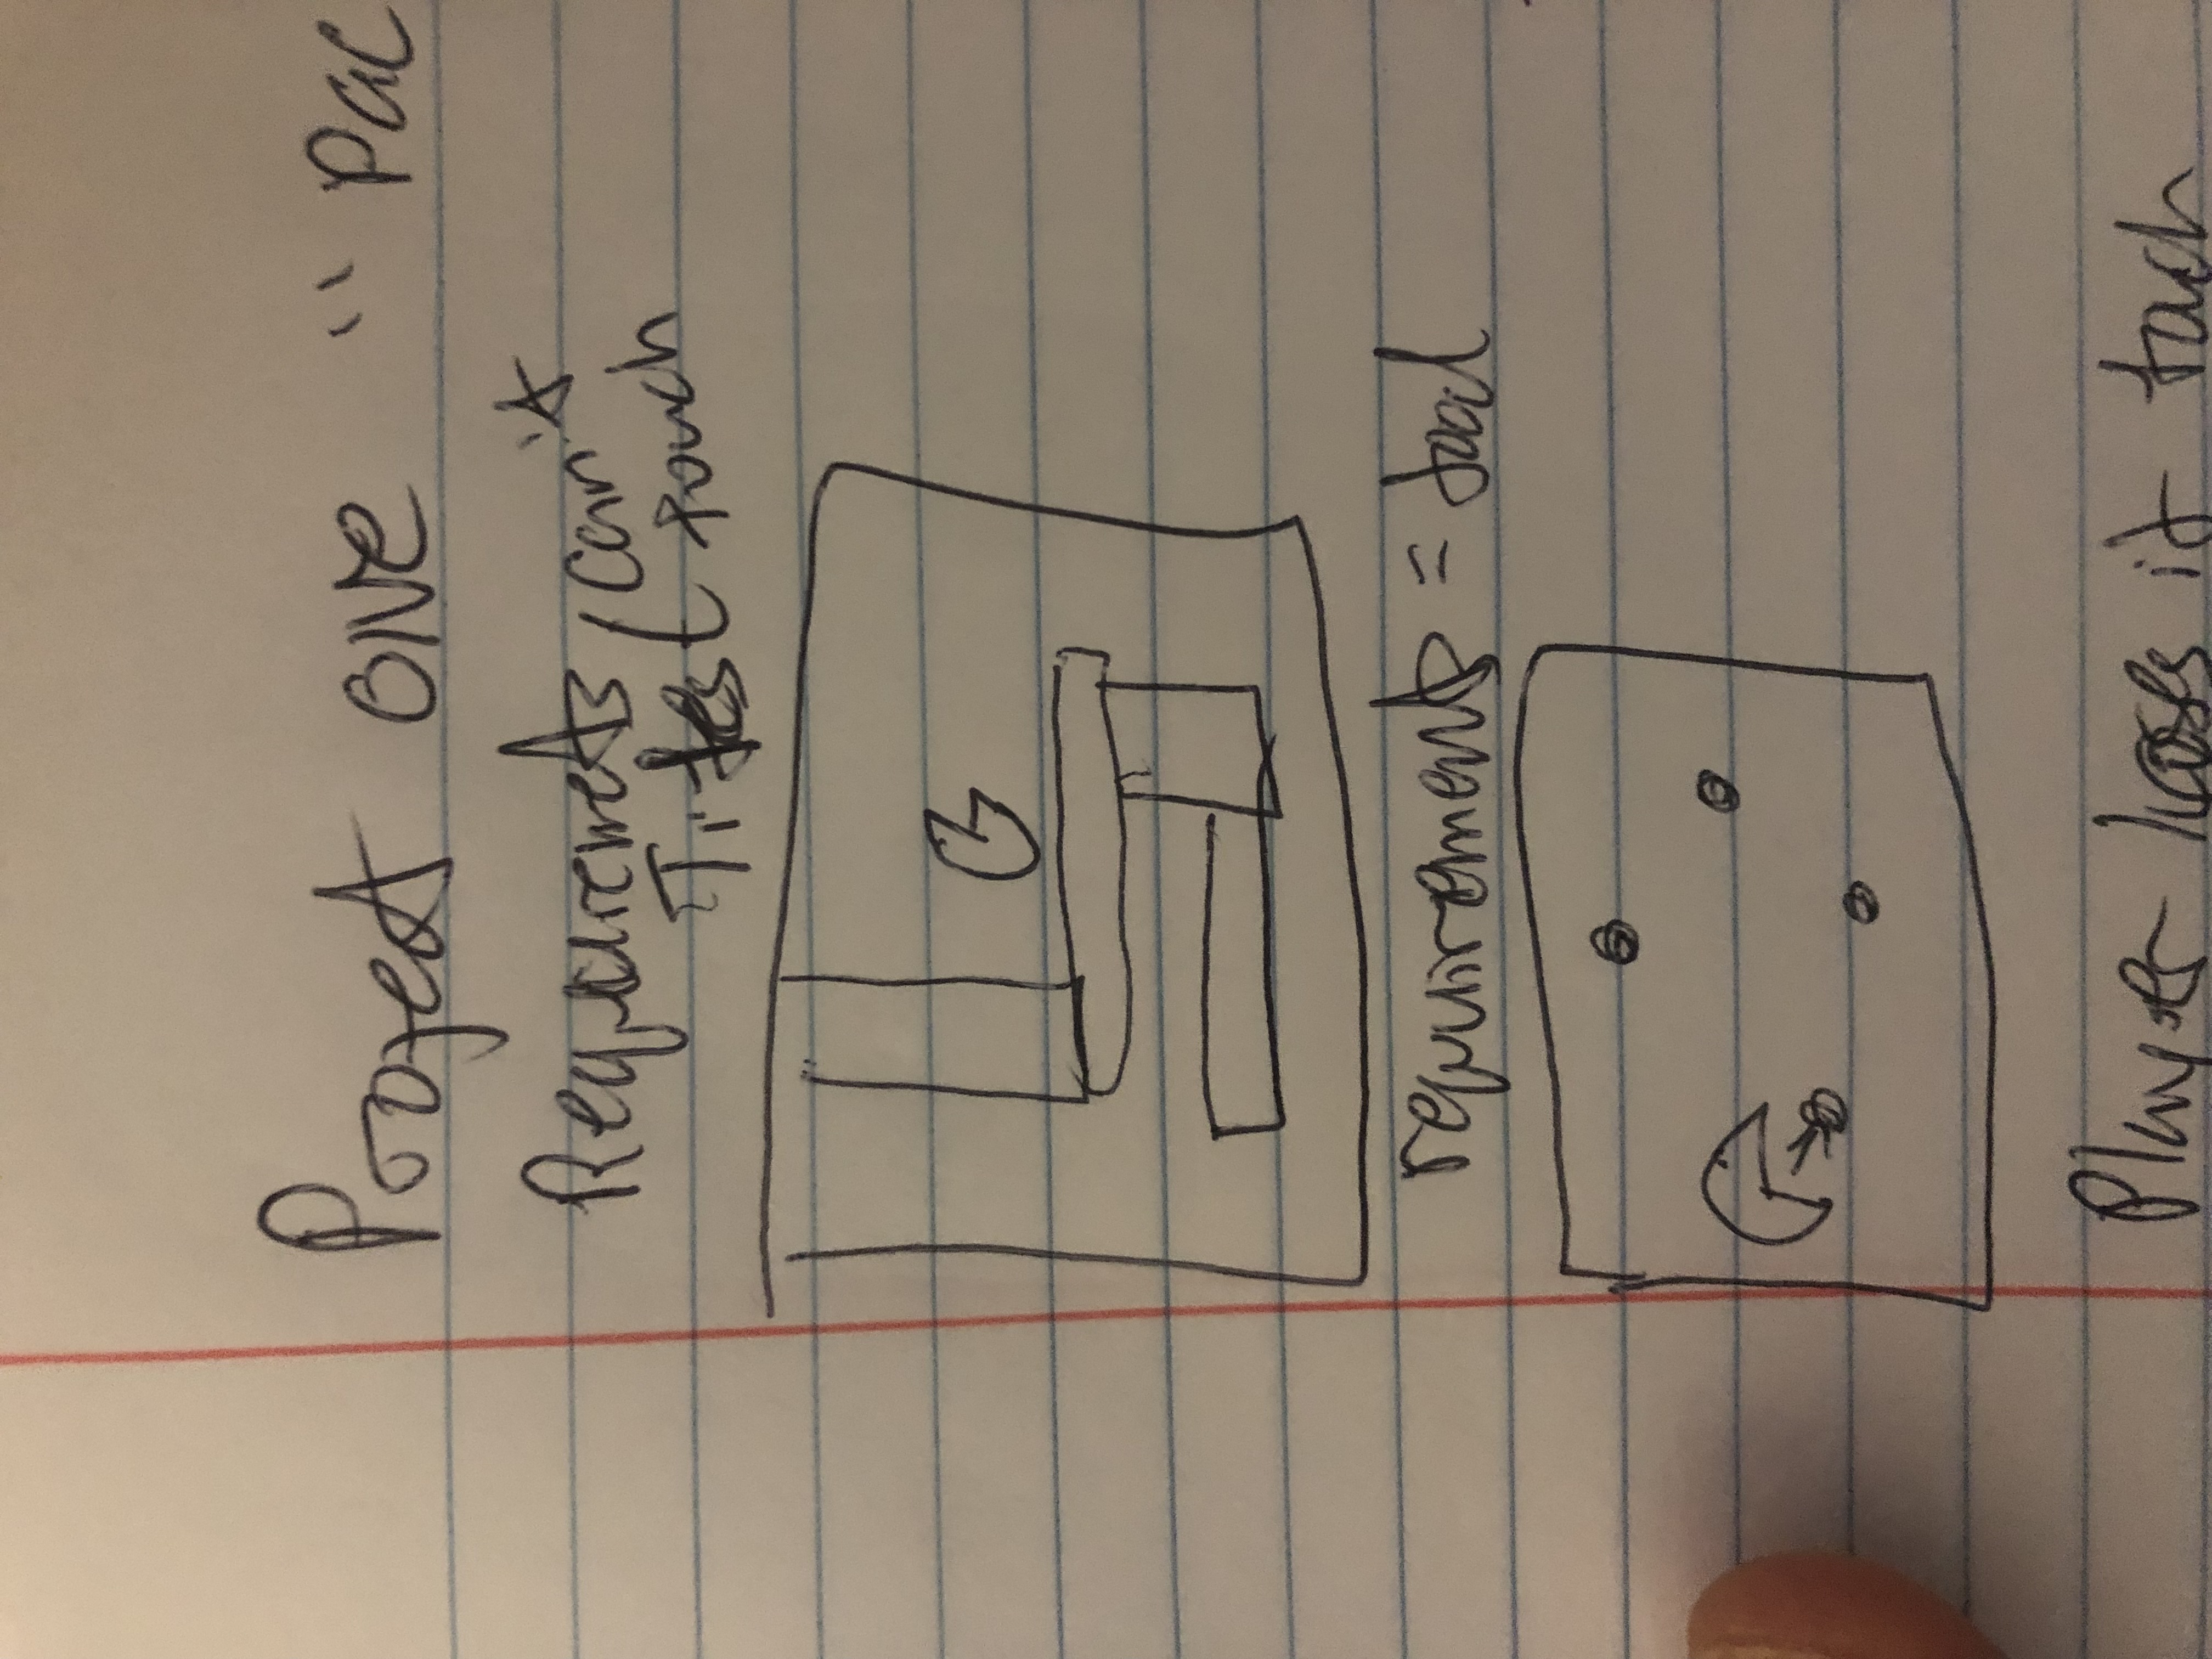 Project ONE " Pac
Requiremets
Tiles ( can't touch
requirements = food
Player loses if touch